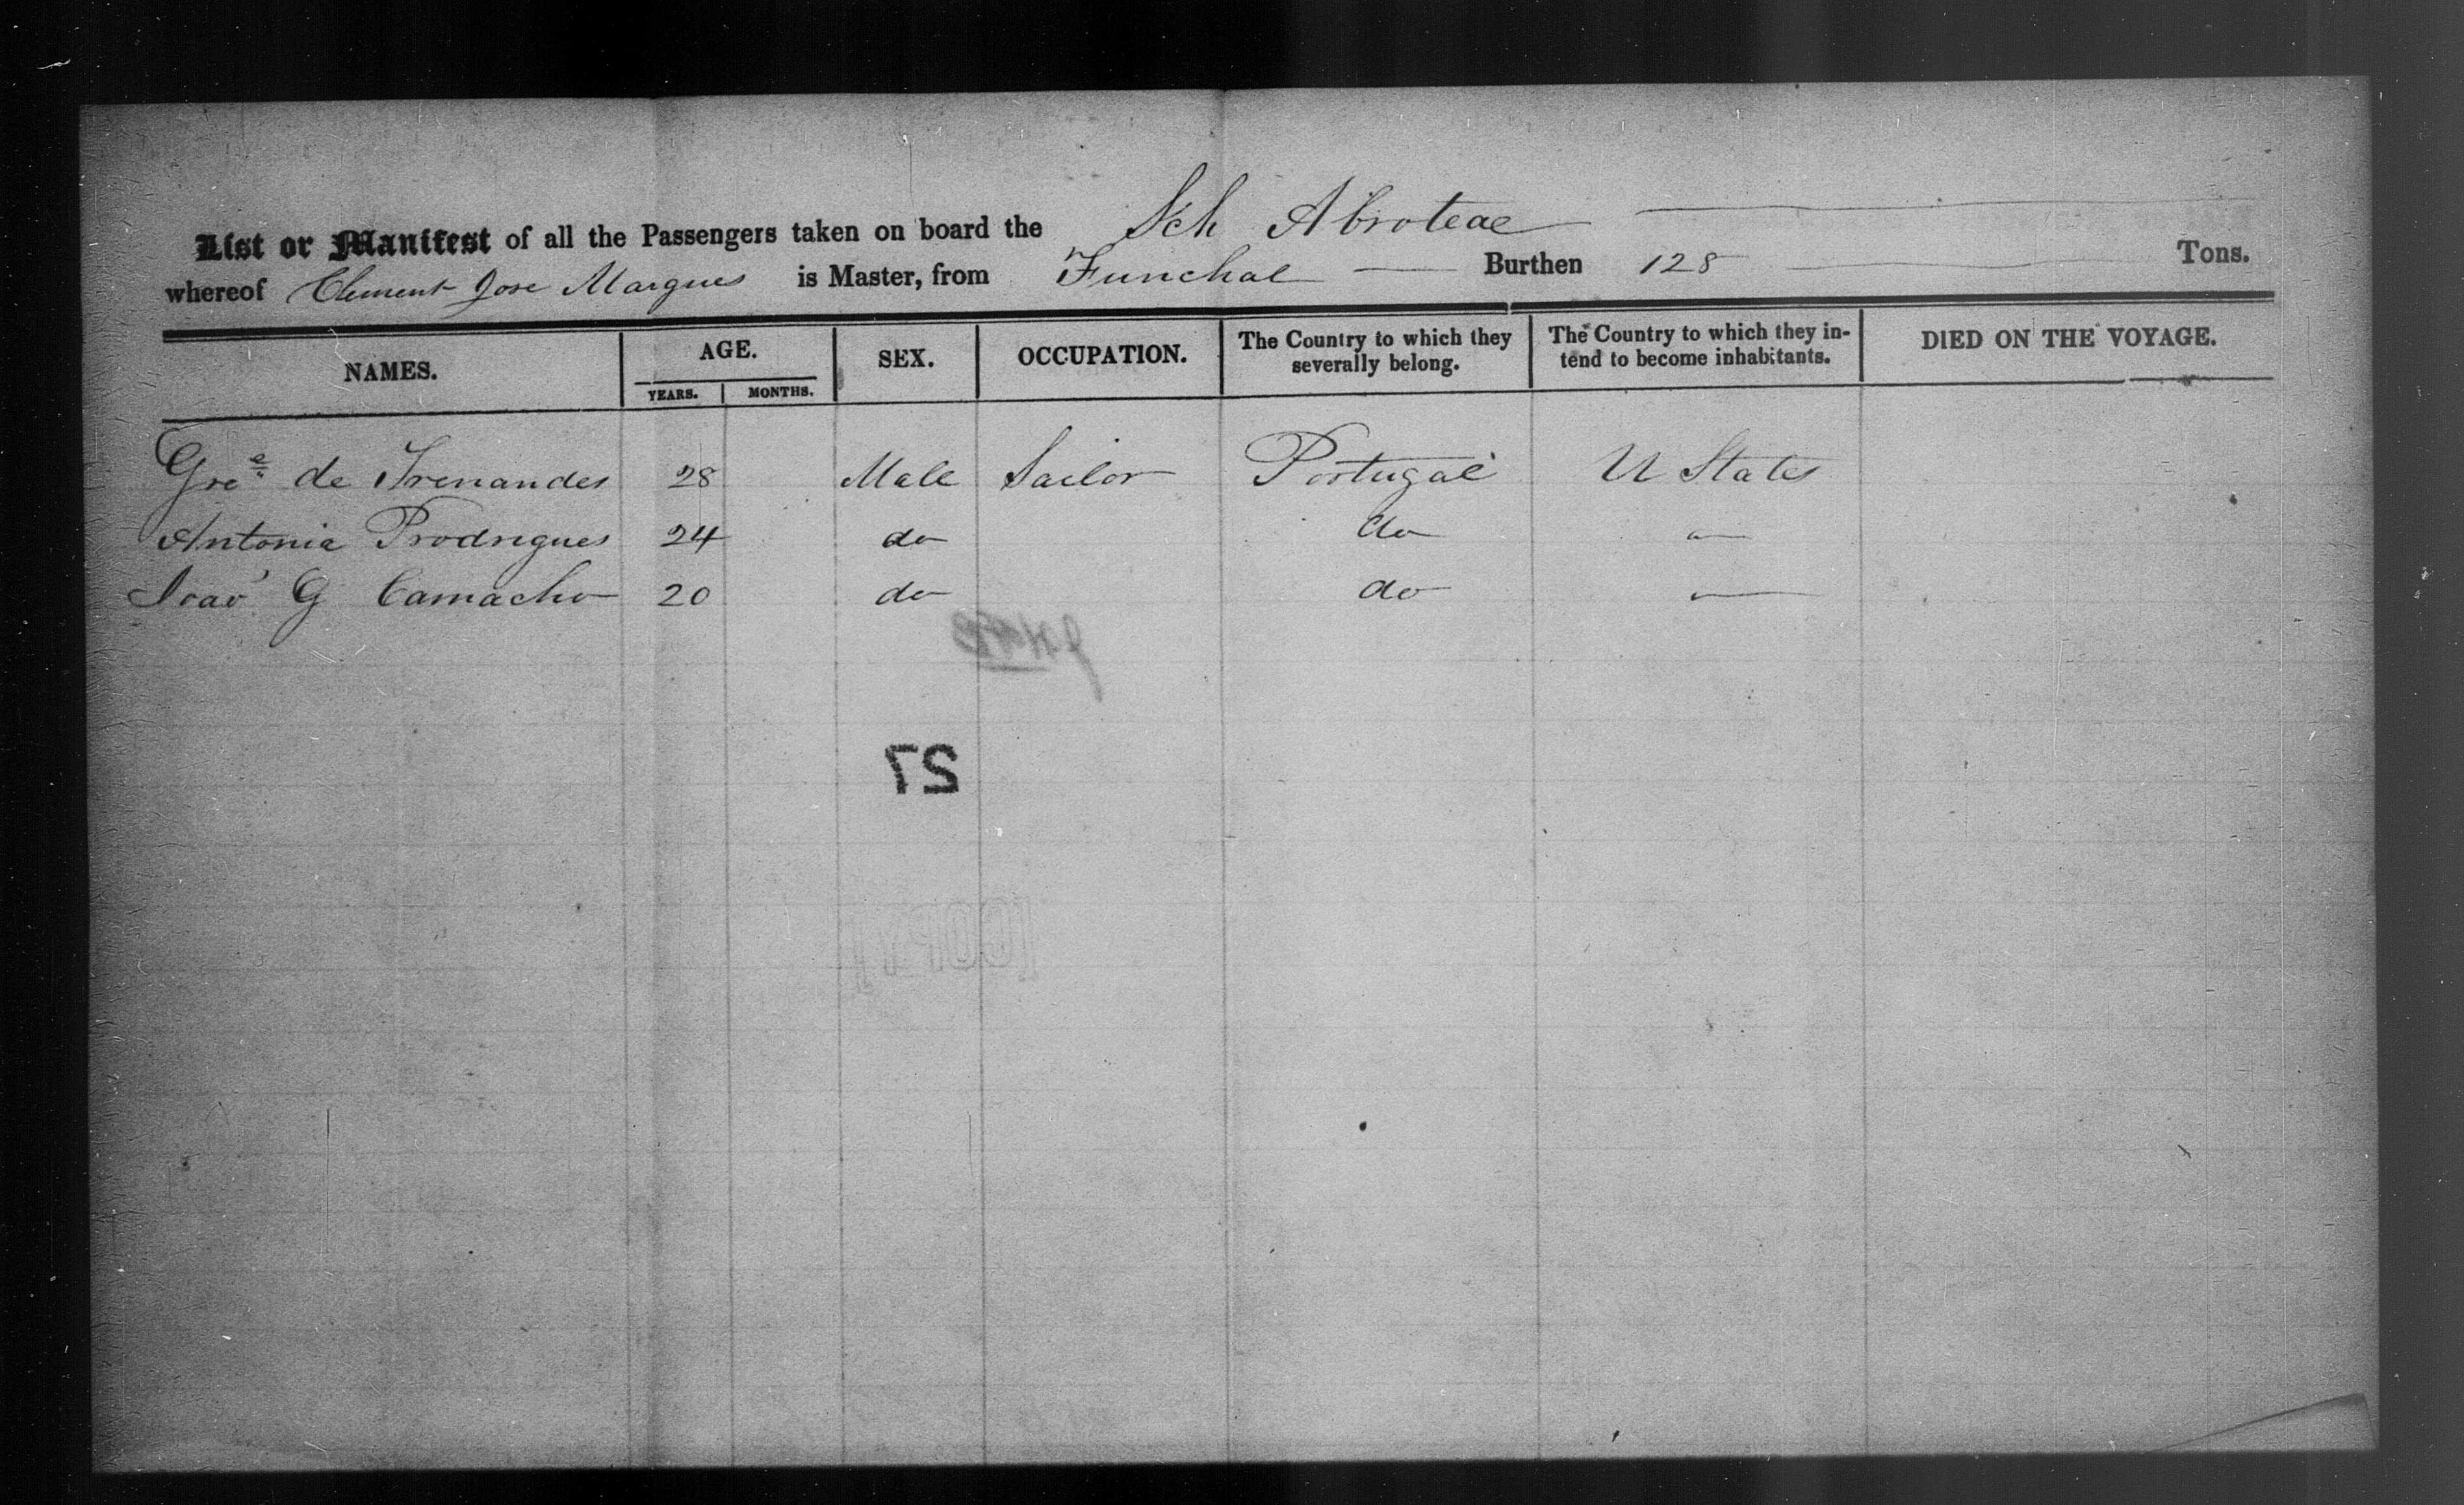 List or Manifest of all the Passengers taken on board the Sch Abroteae
whereof Clement Jose Marques is Master, from Funchal Burthen 128 Tons.
NAMES. AGE. SEX. OCCUPATION. The Country to which they severally belong. The Country to which they intend to become inhabitants. DIED ON THE VOYAGE.
YEARS. MONTHS.
de Frenandes 28 Male Sailor Portugal U States
Antonia Rodrigues 24 do do
Joao G Camacho 20 do do
27
[COPY]